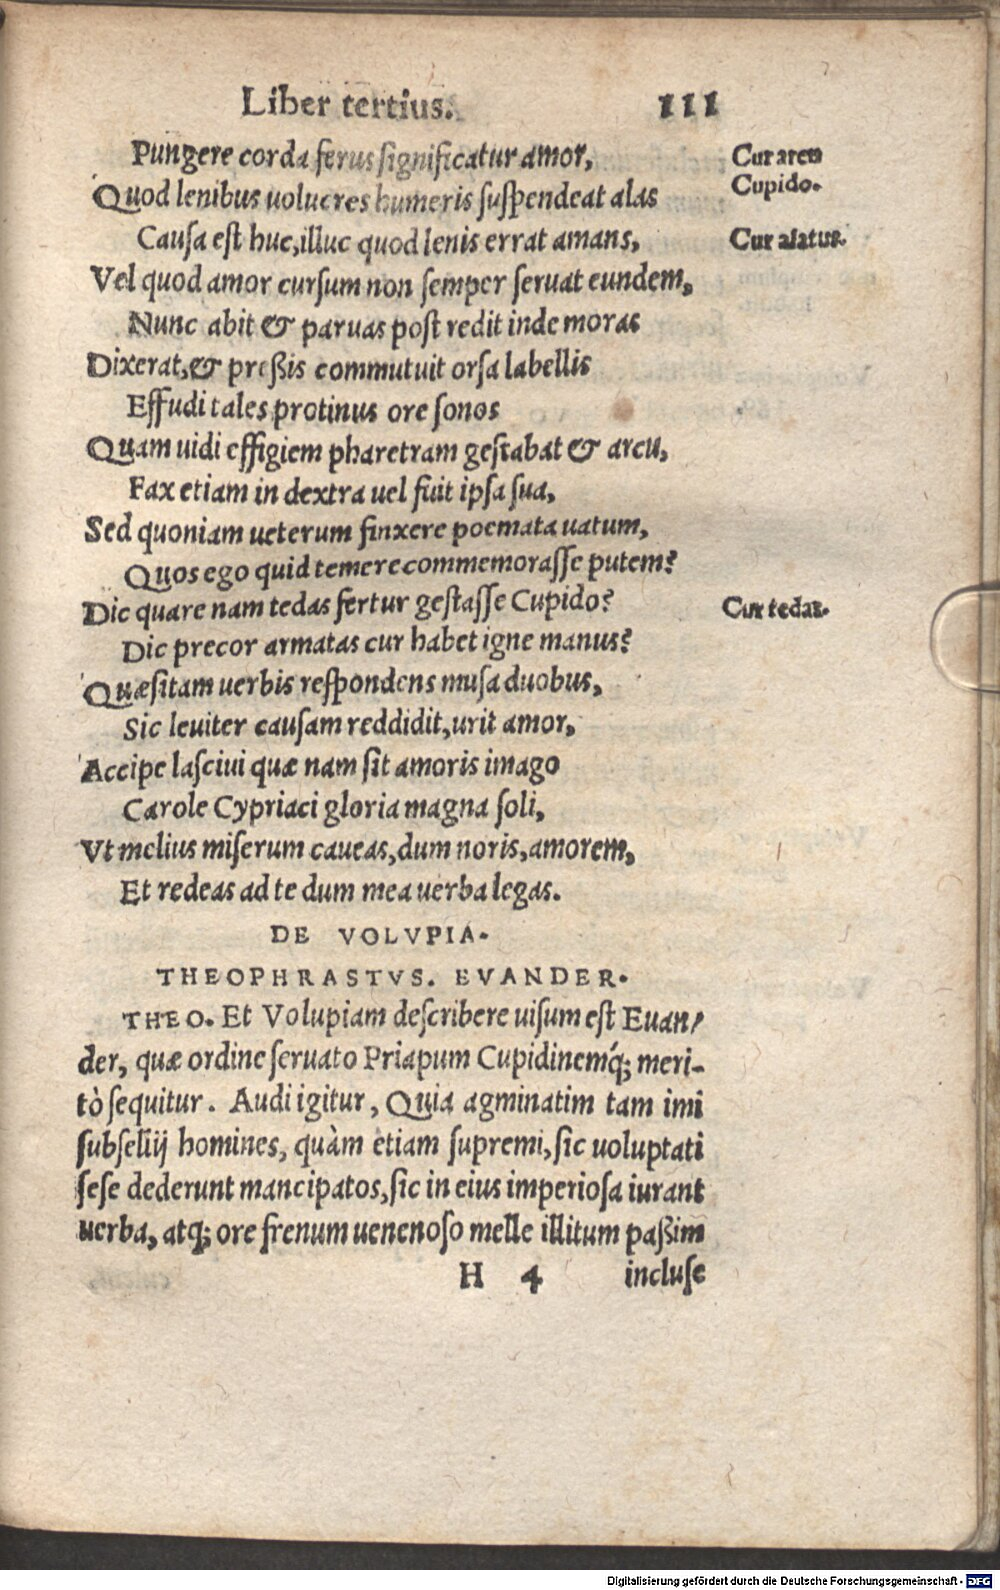 Liber tertius. 111
Pungere corda ferus significatur amor,
Cur arcu
Quod lenibus uolucres humeris suspendeat alas
Cupido.
Causa est huc, illuc quod lenis errat amans,
Cur alatus.
Vel quod amor cursum non semper seruat eundem,
Nunc abit & paruas post redit inde moras
Dixerat, & preßis commutuit orsa labellis
Effudi tales protinus ore sonos
Quam uidi effigiem pharetram gestabat & arcu,
Fax etiam in dextra uel fuit ipsa sua,
Sed quoniam ueterum finxere poemata uatum,
Quos ego quid temere commemorasse putem?
Dic quare nam tedas fertur gestasse Cupido?
Cur tedas.
Dic precor armatas cur habet igne manus?
Quæsitam uerbis respondens musa duobus,
Sic leuiter causam reddidit, urit amor,
Accipe lasciui quæ nam sit amoris imago
Carole Cypriaci gloria magna soli,
Vt melius miserum caueas, dum noris, amorem,
Et redeas ad te dum mea uerba legas.
DE VOLVPIA.
THEOPHRASTVS. EVANDER.
THEO. Et Volupiam describere uisum est Euan/
der, quæ ordine seruato Priapum Cupidinemq́; meri-
tò sequitur. Audi igitur, Quia agminatim tam imi
subsellij homines, quàm etiam supremi, sic uoluptati
sese dederunt mancipatos, sic in eius imperiosa iurant
uerba, atq; ore frenum uenenoso melle illitum paßim
H 4 incluse
Digitalisierung gefördert durch die Deutsche Forschungsgemeinschaft - DFG